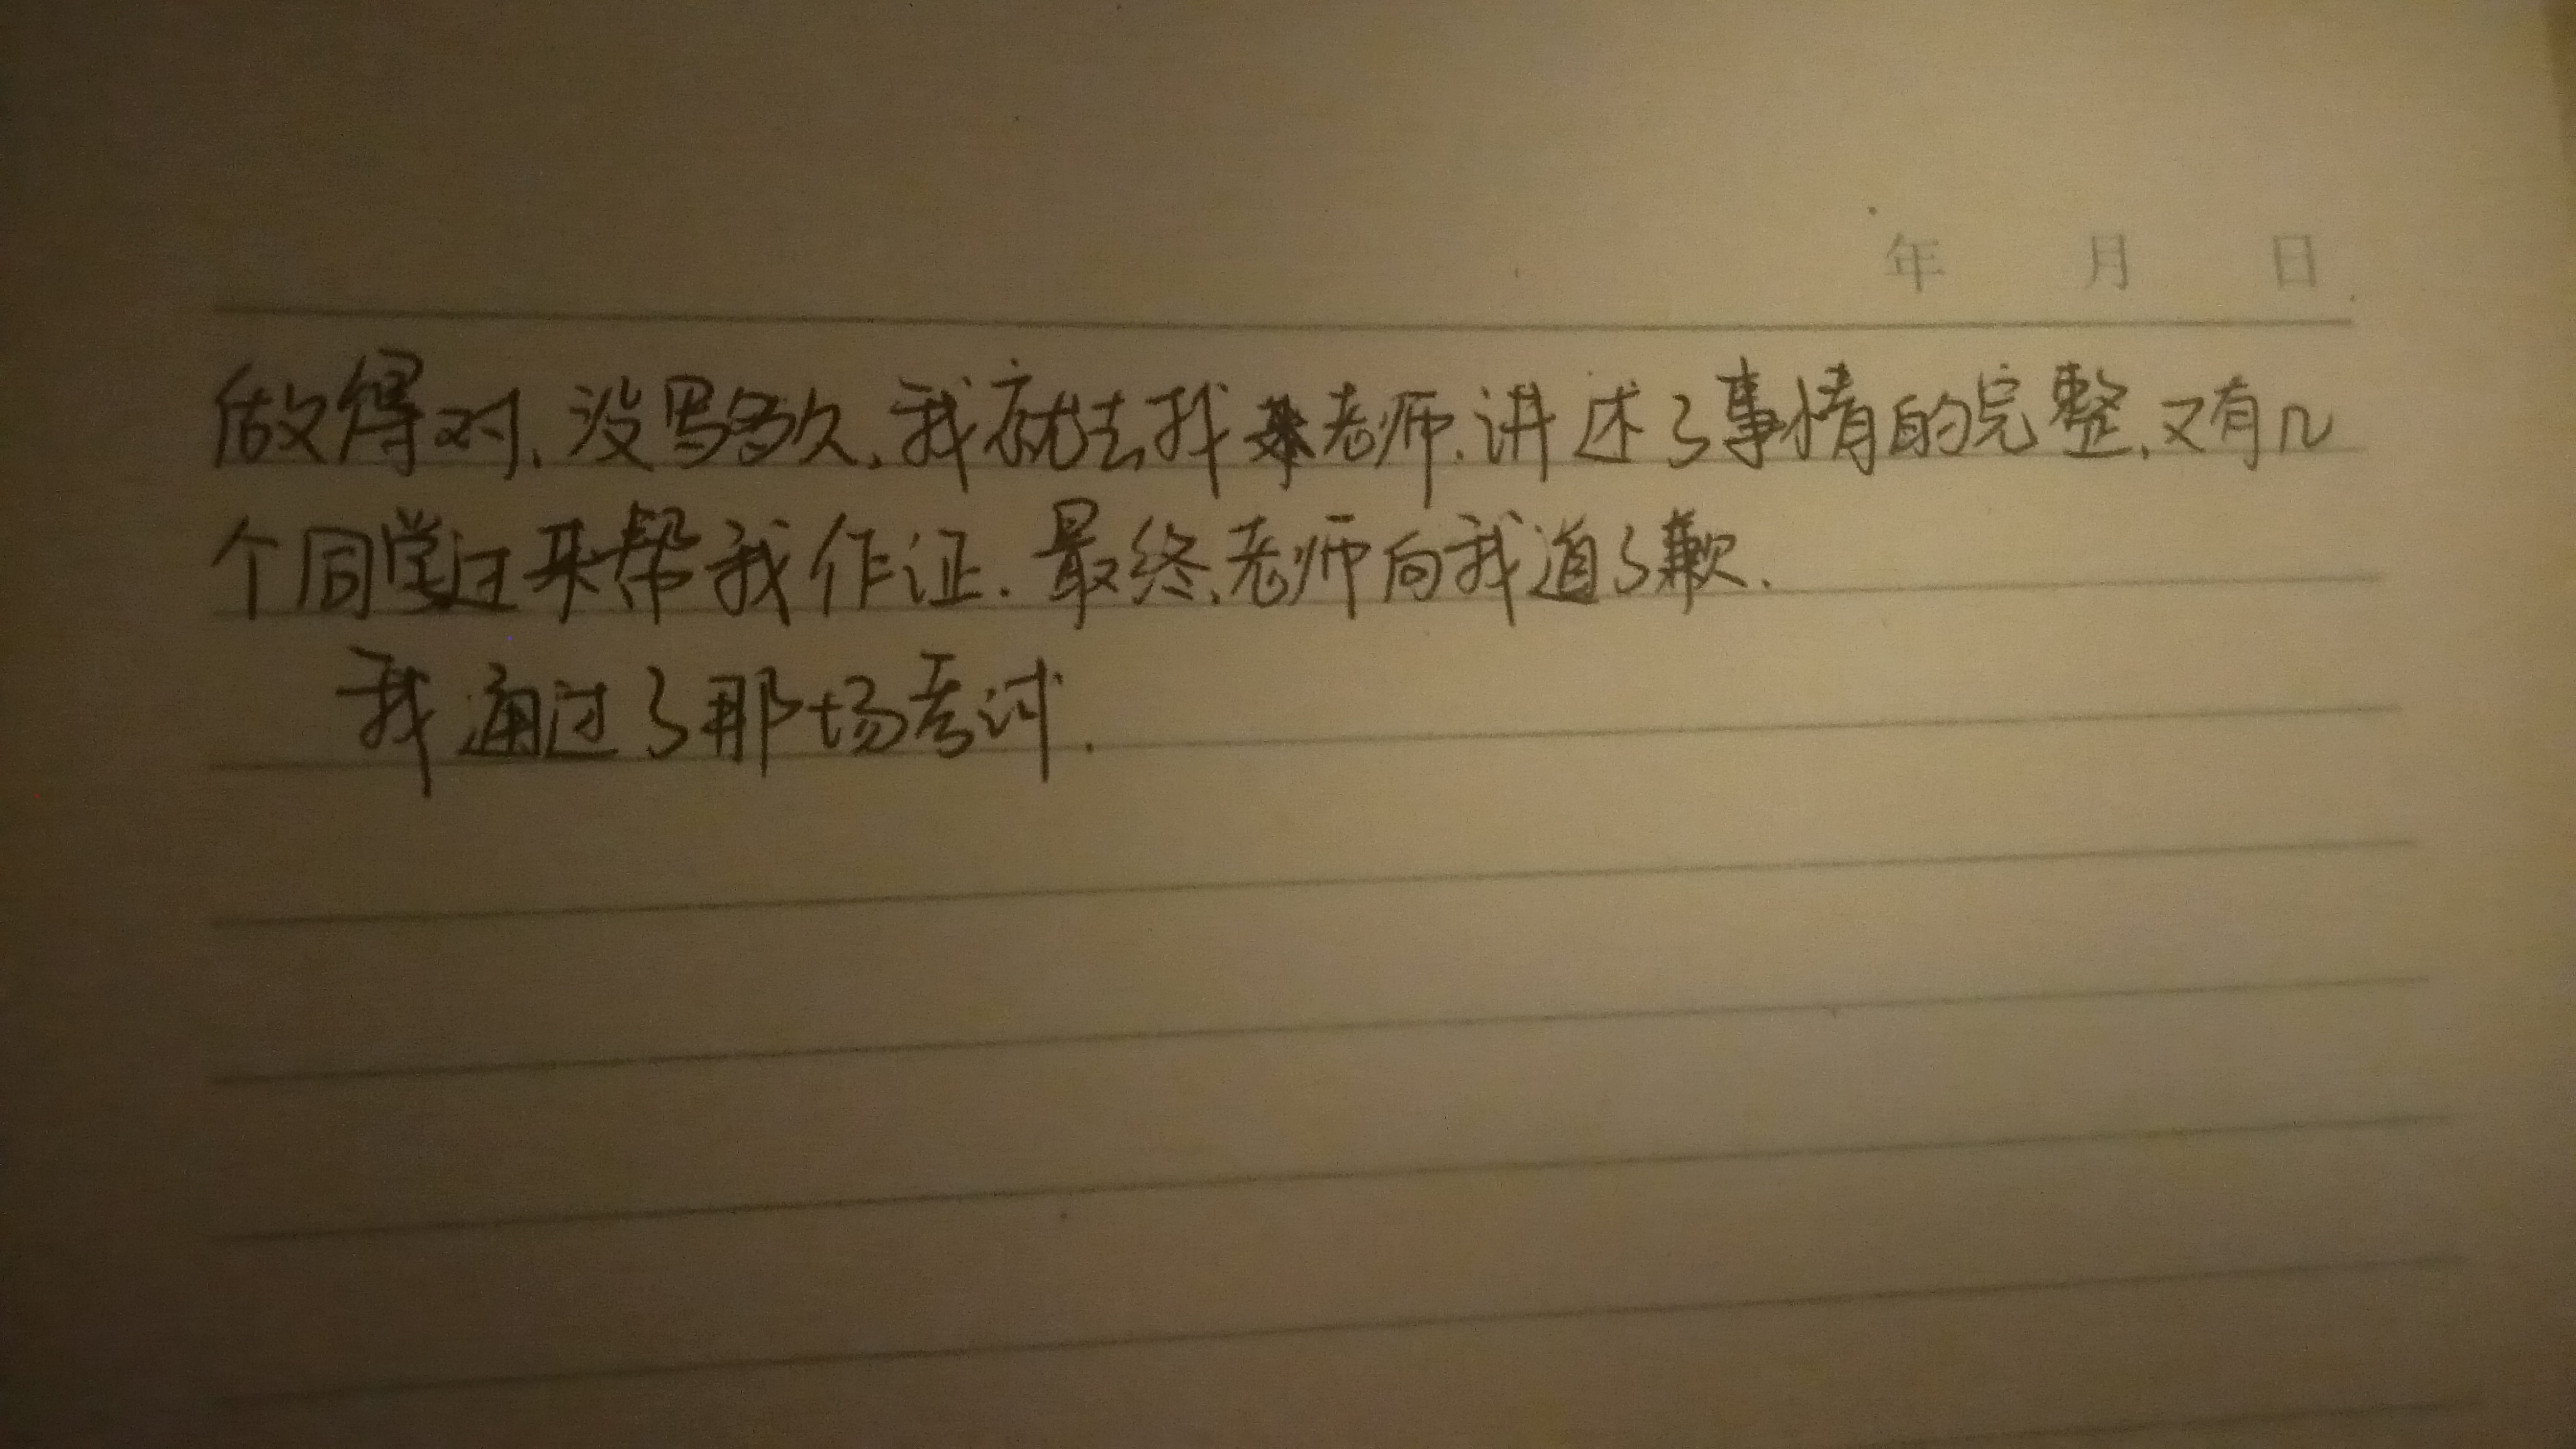 年 月 日
做得对.没写多久,我就去找老师.讲述了事情的完整,又有几
个同学过来帮我作证.最终,老师向我道了歉.
我通过了那场考试.